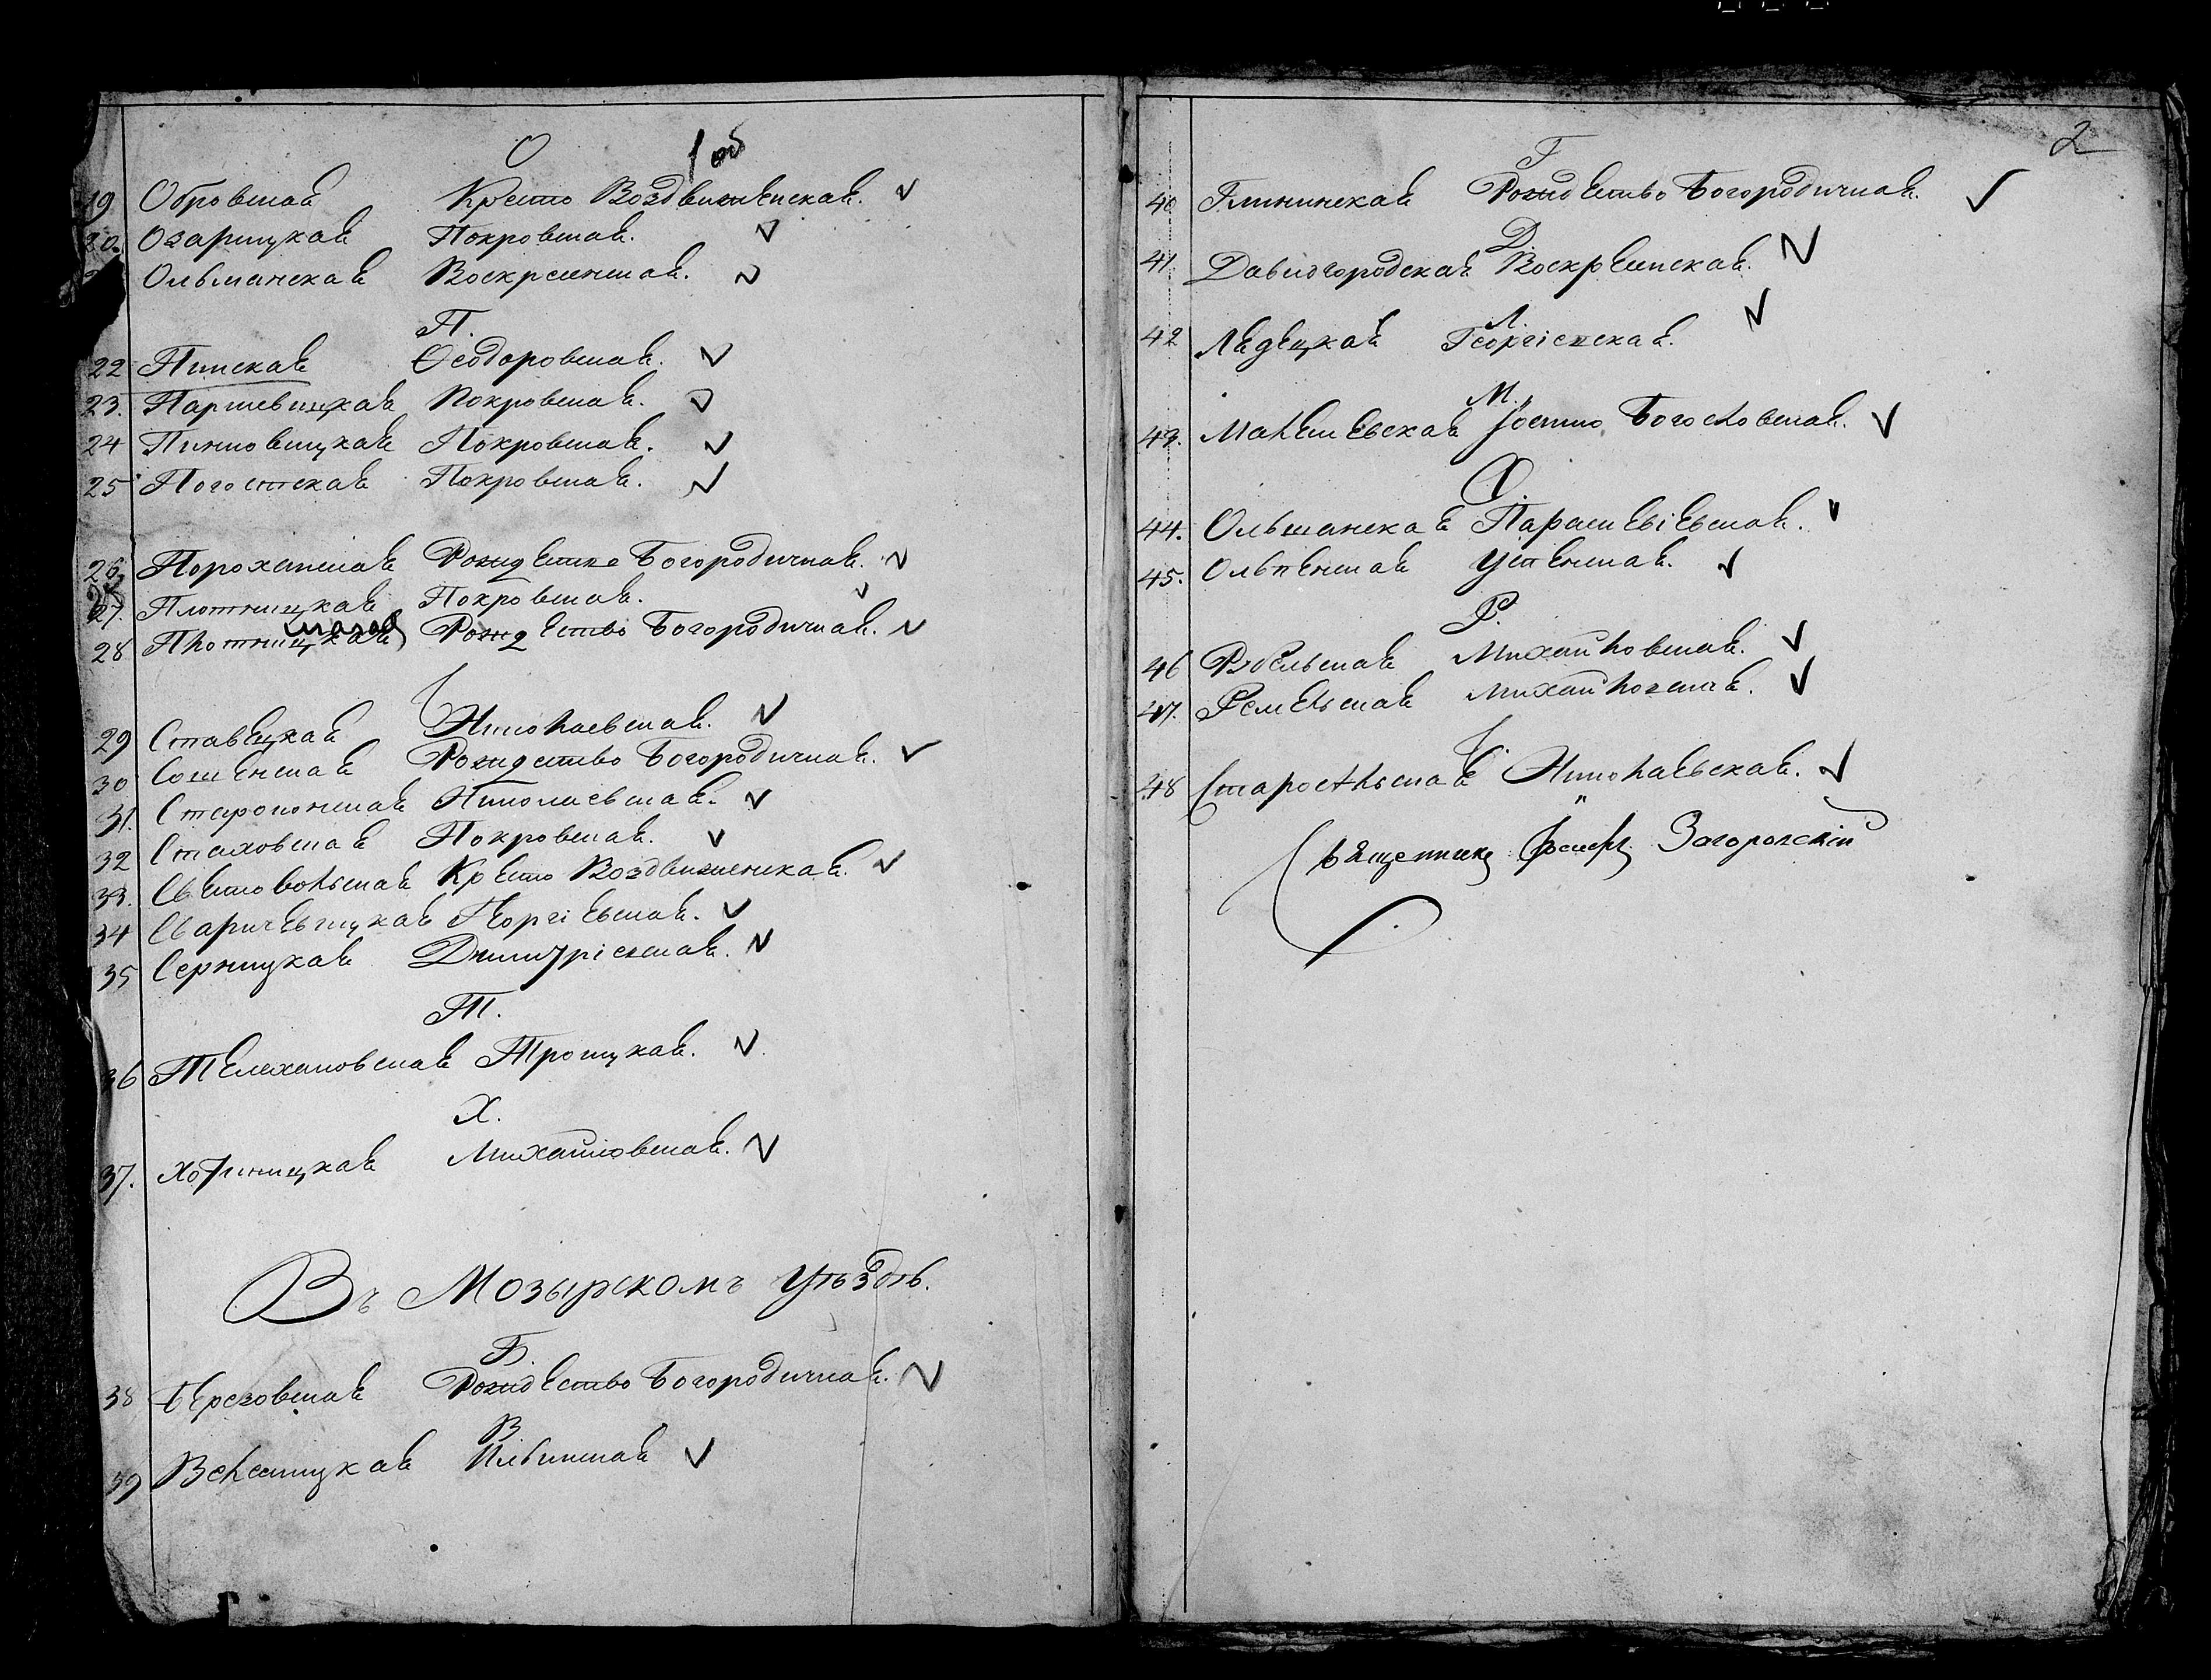 О
1 об
19 Обровская Кресто Воздвиженская.
20. Озарицкая Покровская.
Ольманская Воскресенская.
П.
22 Пинская Ѳеодоровская.
23. Паршевицкая Покровская.
24 Пинковицкая Покровская.
25 Погостская Покровская.
26. Порохонская Рождество Богородичная.
27. Плотницкая Покровская.
28 Плотницкая Рождество Богородичная.
С
29 Ставецкая Николаевская.
30 Сошенская Рождество Богородичная.
31. Староконская Николаевская.
32 Стаховская Покровская.
33. Святовольская Кресто Воздвиженская.
34 Сваричевицкая Георгіевская.
35 Серницкая Димитріевская.
Т.
36 Телехановская Троицкая.
Х.
37. Хотиницкая Михайловская.
Въ Мозырскомъ Уѣздѣ.
Б.
38 Березовская Рождество Богородичная.
В
39 Велемицкая Ильинская
2
Г
40 Глинниская Рождество Богородичная.
Д.
41. Давидгородская Воскресенская.
Л.
42 Лядецкая Георгіевская.
М.
43. Малешевская Іоанно Богословская.
О.
44. Ольшанская Параскевіевская.
45. Ольпенская Успенская.
Р.
46 Рубельская Михайловская.
47. Ремельская Михайловская.
С
48 Старосельская Николаевская.
Священникъ Іосифъ Загоровскій